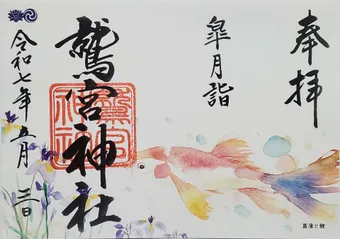 奉拝
皐月詣
鷲宮神社
令和七年五月三日
菖蒲と鯉